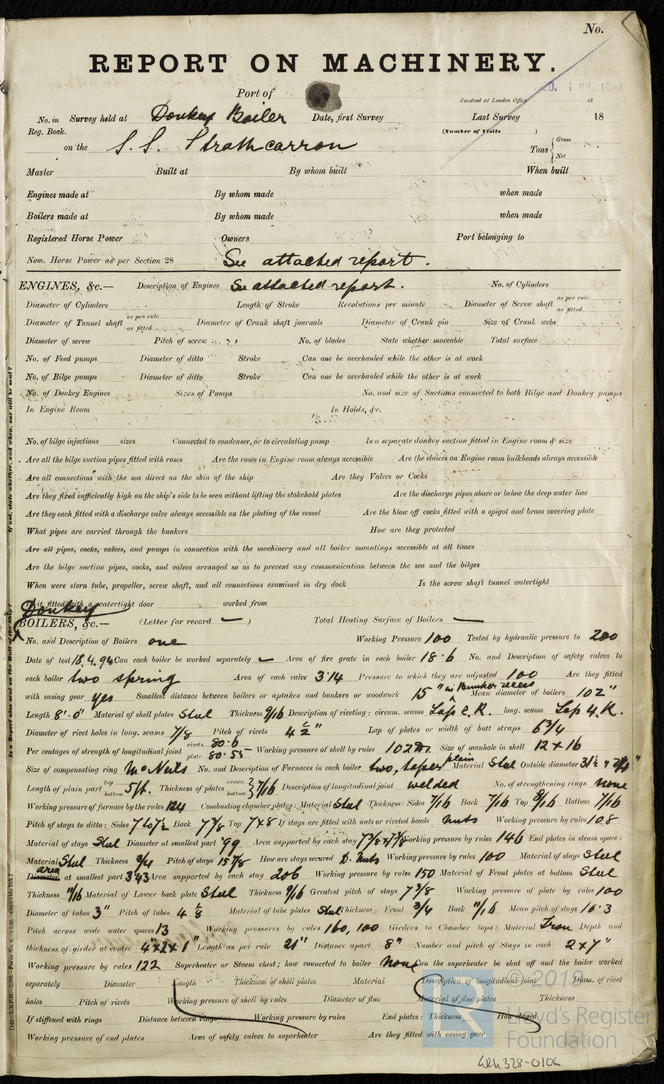 No.
REPORT ON MACHINERY.
Port of
Received at London Office 18
No. in Survey held at Donkey Boiler Date, first Survey Last Survey 18
Reg. Book. (Number of Visits )
on the S.S. Strathcarron Tons { Gross Net
Master Built at By whom built When built
Engines made at By whom made when made
Boilers made at By whom made when made
Registered Horse Power Owners Port belonging to
Nom. Horse Power as per Section 28 See attached report.
ENGINES, &c.— Description of Engines See attached report. No. of Cylinders
Diameter of Cylinders Length of Stroke Revolutions per minute Diameter of Screw shaft as per rule as fitted
Diameter of Tunnel shaft as per rule as fitted Diameter of Crank shaft journals Diameter of Crank pin Size of Crank webs
Diameter of screw Pitch of screw No. of blades State whether moveable Total surface
No. of Feed pumps Diameter of ditto Stroke Can one be overhauled while the other is at work
No. of Bilge pumps Diameter of ditto Stroke Can one be overhauled while the other is at work
No. of Donkey Engines Sizes of Pumps No. and size of Suctions connected to both Bilge and Donkey pumps
In Engine Room In Holds, &c.
No. of bilge injections sizes Connected to condenser, or to circulating pump Is a separate donkey suction fitted in Engine room & size
Are all the bilge suction pipes fitted with roses Are the roses in Engine room always accessible Are the sluices on Engine room bulkheads always accessible
Are all connections with the sea direct on the skin of the ship Are they Valves or Cocks
Are they fixed sufficiently high on the ship's side to be seen without lifting the stokehold plates Are the discharge pipes above or below the deep water line
Are they each fitted with a discharge valve always accessible on the plating of the vessel Are the blow off cocks fitted with a spigot and brass covering plate
What pipes are carried through the bunkers How are they protected
Are all pipes, cocks, valves, and pumps in connection with the machinery and all boiler mountings accessible at all times
Are the bilge suction pipes, cocks, and valves arranged so as to prevent any communication between the sea and the bilges
When were stern tube, propeller, screw shaft, and all connections examined in dry dock Is the screw shaft tunnel watertight
Is it fitted with a watertight door worked from
Donkey
BOILERS, &c.— (Letter for record — ) Total Heating Surface of Boilers —
No. and Description of Boilers one Working Pressure 100 Tested by hydraulic pressure to 200
Date of test 18.4.94 Can each boiler be worked separately — Area of fire grate in each boiler 18.6 No. and Description of safety valves to
each boiler two spring Area of each valve 3.14 Pressure to which they are adjusted 100 Are they fitted
with easing gear yes Smallest distance between boilers or uptakes and bunkers or woodwork 15" in Bunker recess Mean diameter of boilers 102"
Length 8'.0" Material of shell plates Steel Thickness 9/16 Description of riveting: circum. seams Lap 2.R. long. seams Lap 4.R.
Diameter of rivet holes in long. seams 7/8 Pitch of rivets 4 1/2" Lap of plates or width of butt straps 6 3/4
Per centages of strength of longitudinal joint rivets 80.6 plate 80.55 Working pressure of shell by rules 102 Size of manhole in shell 12 x 16
Size of compensating ring McNeils No. and Description of Furnaces in each boiler two, taper plain Material Steel Outside diameter
Length of plain part top bottom 5/6 Thickness of plates crown bottom } 7/16 Description of longitudinal joint welded No. of strengthening rings none
Working pressure of furnace by the rules 124 Combustion chamber plates: Material Steel Thickness: Sides 7/16 Back 7/16 Top 9/16 Bottom 7/16
Pitch of stays to ditto: Sides Back 7 7/8 Top 7x8 If stays are fitted with nuts or riveted heads nuts Working pressure by rules 108
Material of stays Steel Diameter at smallest part .99 Area supported by each stay 7 7/8 x 7 7/8 Working pressure by rules 146 End plates in steam space:
Material Steel Thickness 3/4 Pitch of stays 15 7/8 How are stays secured D. Nuts Working pressure by rules 100 Material of stays Steel
area
Diameter at smallest part 3.43 Area supported by each stay 206 Working pressure by rules 150 Material of Front plates at bottom Steel
Thickness 9/16 Material of Lower back plate Steel Thickness 9/16 Greatest pitch of stays 7 3/8 Working pressure of plate by rules 100
Diameter of tubes 3" Pitch of tubes 4 1/8 Material of tube plates Steel Thickness: Front 3/4 Back 11/16 Mean pitch of stays 10.3
Pitch across wide water spaces 13 Working pressures by rules 160, 100 Girders to Chamber tops: Material Iron Depth and
thickness of girder at centre 4"x2x1" Length as per rule 21" Distance apart 8" Number and pitch of Stays in each 2 x 7"
Working pressure by rules 122 Superheater or Steam chest; how connected to boiler None Can the superheater be shut off and the boiler worked
separately Diameter Length Thickness of shell plates Material Description of longitudinal joint Diam. of rivet
holes Pitch of rivets Working pressure of shell by rules Diameter of flue Material of flue plates Thickness
If stiffened with rings Distance between rings Working pressure by rules End plates: Thickness How stayed
Working pressure of end plates Area of safety valves to superheater Are they fitted with easing gear
© 2019
Lloyd's Register
Foundation
GRK328-0106